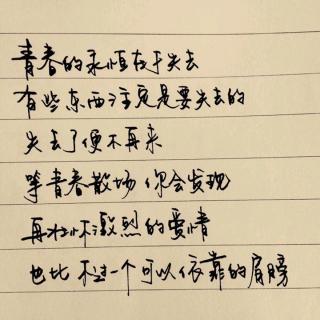 青春的永恒在于失去
有些东西注定是要失去的
失去了便不再来
等青春散场 你会发现
再壮怀激烈的爱情
也比不过一个可以依靠的肩膀